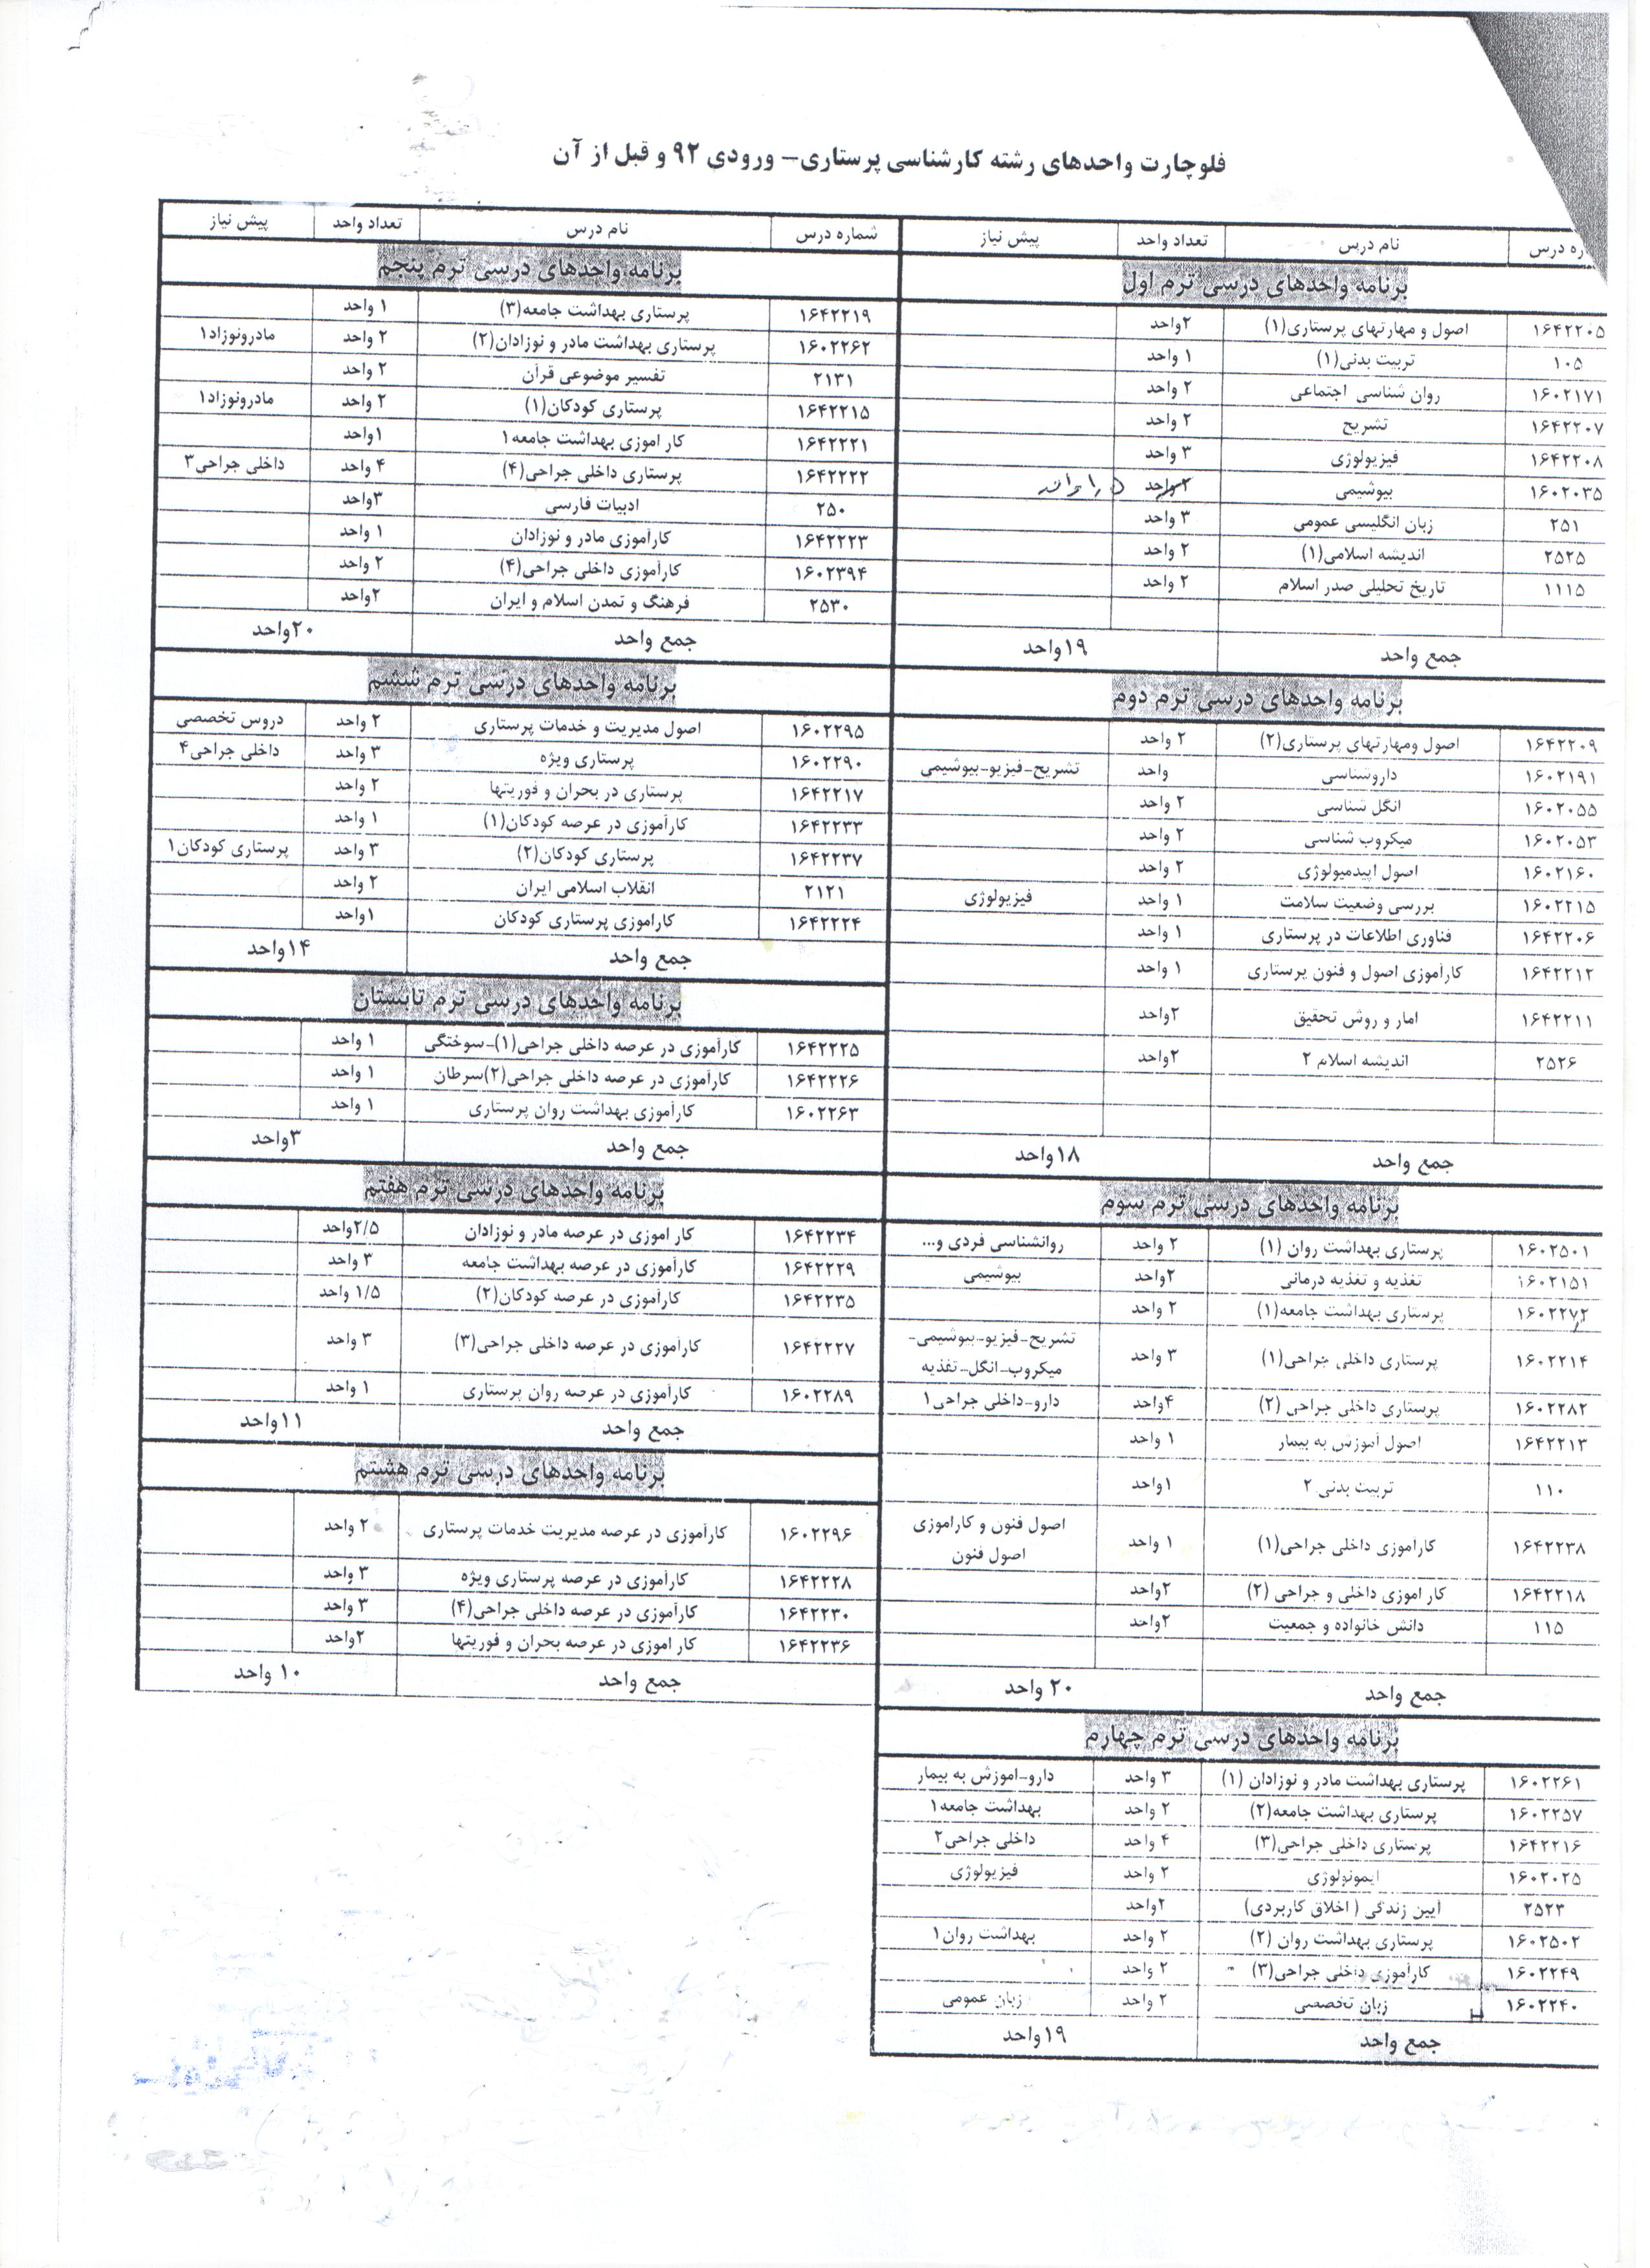 فلوچارت واحدهای رشته کارشناسی پرستاری- ورودی ۹۲ و قبل از آن
ره درس نام درس تعداد واحد پیش نیاز
برنامه واحدهای درسی ترم اول
۱۶۴۲۲۰۵ اصول و مهارتهای پرستاری(۱) ۲واحد
۱۰۵ تربیت بدنی(۱) ۱ واحد
۱۶۰۲۱۷۱ روان شناسی اجتماعی ۲ واحد
۱۶۴۲۲۰۷ تشریح ۲ واحد
۱۶۴۲۲۰۸ فیزیولوژی ۳ واحد
۱۶۰۲۰۳۵ بیوشیمی ۲واحد
۲۵۱ زبان انگلیسی عمومی ۳ واحد
۲۵۲۵ اندیشه اسلامی(۱) ۲ واحد
۱۱۱۵ تاریخ تحلیلی صدر اسلام ۲ واحد
جمع واحد ۱۹واحد
برنامه واحدهای درسی ترم دوم
۱۶۴۲۲۰۹ اصول ومهارتهای پرستاری(۲) ۲ واحد
۱۶۰۲۱۹۱ داروشناسی واحد تشریح-فیزیو-بیوشیمی
۱۶۰۲۰۵۵ انگل شناسی ۲ واحد
۱۶۰۲۰۵۳ میکروب شناسی ۲ واحد
۱۶۰۲۱۶۰ اصول اپیدمیولوژی ۲ واحد
۱۶۰۲۲۱۵ بررسی وضعیت سلامت ۱ واحد فیزیولوژی
۱۶۴۲۲۰۶ فناوری اطلاعات در پرستاری ۱ واحد
۱۶۴۲۲۱۲ کارآموزی اصول و فنون پرستاری ۱ واحد
۱۶۴۲۲۱۱ امار و روش تحقیق ۲واحد
۲۵۲۶ اندیشه اسلام ۲ ۲واحد
جمع واحد ۱۸واحد
برنامه واحدهای درسی ترم سوم
۱۶۰۲۵۰۱ پرستاری بهداشت روان (۱) ۲ واحد روانشناسی فردی و...
۱۶۰۲۱۵۱ تغذیه و تغذیه درمانی ۲واحد بیوشیمی
۱۶۰۲۲۷۲ پرستاری بهداشت جامعه(۱) ۲ واحد
۱۶۰۲۲۱۴ پرستاری داخلی جراحی(۱) ۳ واحد تشریح-فیزیو-بیوشیمی-
میکروب-انگل-تغذیه
۱۶۰۲۲۸۲ پرستاری داخلی جراحی (۲) ۴واحد دارو-داخلی جراحی۱
۱۶۴۲۲۱۳ اصول آموزش به بیمار ۱ واحد
۱۱۰ تربیت بدنی ۲ ۱واحد
۱۶۴۲۲۳۸ کارآموزی داخلی جراحی(۱) ۱ واحد اصول فنون و کاراموزی
اصول فنون
۱۶۴۲۲۱۸ کار اموزی داخلی و جراحی (۲) ۲واحد
۱۱۵ دانش خانواده و جمعیت ۲واحد
جمع واحد ۲۰ واحد
برنامه واحدهای درسی ترم چهارم
۱۶۰۲۲۶۱ پرستاری بهداشت مادر و نوزادان (۱) ۳ واحد دارو-اموزش به بیمار
۱۶۰۲۲۵۷ پرستاری بهداشت جامعه(۲) ۲ واحد بهداشت جامعه۱
۱۶۴۲۲۱۶ پرستاری داخلی جراحی(۳) ۴ واحد داخلی جراحی۲
۱۶۰۲۰۲۵ ایمونولوژی ۲ واحد فیزیولوژی
۲۵۲۳ آیین زندگی ( اخلاق کاربردی) ۲واحد
۱۶۰۲۵۰۲ پرستاری بهداشت روان (۲) ۲ واحد بهداشت روان۱
۱۶۰۲۲۴۹ کارآموزی داخلی جراحی(۳) ۲ واحد
۱۶۰۲۲۴۰ زبان تخصصی ۲ واحد زبان عمومی
جمع واحد ۱۹واحد
شماره درس نام درس تعداد واحد پیش نیاز
برنامه واحدهای درسی ترم پنجم
۱۶۴۲۲۱۹ پرستاری بهداشت جامعه(۳) ۱ واحد
۱۶۰۲۲۶۲ پرستاری بهداشت مادر و نوزادان(۲) ۲ واحد مادرونوزاد۱
۲۱۳۱ تفسیر موضوعی قرآن ۲ واحد
۱۶۴۲۲۱۵ پرستاری کودکان(۱) ۲ واحد مادرونوزاد۱
۱۶۴۲۲۲۱ کار اموزی بهداشت جامعه۱ ۱واحد
۱۶۴۲۲۲۲ پرستاری داخلی جراحی(۴) ۴ واحد داخلی جراحی۳
۲۵۰ ادبیات فارسی ۳واحد
۱۶۴۲۲۲۳ کارآموزی مادر و نوزادان ۱ واحد
۱۶۰۲۳۹۴ کارآموزی داخلی جراحی(۴) ۲ واحد
۲۵۳۰ فرهنگ و تمدن اسلام و ایران ۲واحد
جمع واحد ۲۰واحد
برنامه واحدهای درسی ترم ششم
۱۶۰۲۲۹۵ اصول مدیریت و خدمات پرستاری ۲ واحد دروس تخصصی
۱۶۰۲۲۹۰ پرستاری ویژه ۳ واحد داخلی جراحی۴
۱۶۴۲۲۱۷ پرستاری در بحران و فوریتها ۲ واحد
۱۶۴۲۲۳۳ کارآموزی در عرصه کودکان(۱) ۱ واحد
۱۶۴۲۲۳۷ پرستاری کودکان(۲) ۳ واحد پرستاری کودکان۱
۲۱۲۱ انقلاب اسلامی ایران ۲ واحد
۱۶۴۲۲۲۴ کاراموزی پرستاری کودکان ۱واحد
جمع واحد ۱۴واحد
برنامه واحدهای درسی ترم تابستان
۱۶۴۲۲۲۵ کارآموزی در عرصه داخلی جراحی(۱)-سوختگی ۱ واحد
۱۶۴۲۲۲۶ کارآموزی در عرصه داخلی جراحی(۲)سرطان ۱ واحد
۱۶۰۲۲۶۳ کارآموزی بهداشت روان پرستاری ۱ واحد
جمع واحد ۳واحد
برنامه واحدهای درسی ترم هفتم
۱۶۴۲۲۳۴ کار اموزی در عرصه مادر و نوزادان ۲/۵واحد
۱۶۴۲۲۲۹ کارآموزی در عرصه بهداشت جامعه ۳ واحد
۱۶۴۲۲۳۵ کارآموزی در عرصه کودکان(۲) ۱/۵ واحد
۱۶۴۲۲۲۷ کارآموزی در عرصه داخلی جراحی(۳) ۳ واحد
۱۶۰۲۲۸۹ کارآموزی در عرصه روان پرستاری ۱ واحد
جمع واحد ۱۱واحد
برنامه واحدهای درسی ترم هشتم
۱۶۰۲۲۹۶ کارآموزی در عرصه مدیریت خدمات پرستاری ۲ واحد
۱۶۴۲۲۲۸ کارآموزی در عرصه پرستاری ویژه ۳ واحد
۱۶۴۲۲۳۰ کارآموزی در عرصه داخلی جراحی(۴) ۳ واحد
۱۶۴۲۲۳۶ کار اموزی در عرصه بحران و فوریتها ۲واحد
جمع واحد ۱۰ واحد